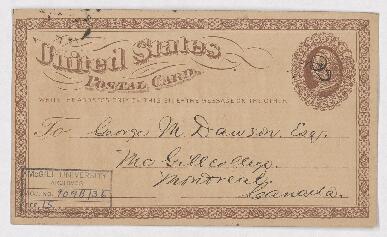 United States
POSTAL CARD.
WRITE THE ADDRESS ONLY ON THIS SIDE-THE MESSAGE ON THE OTHER
To George M. Dawson Esq.
McGill College
Montreal
Canada.
McGILL UNIVERSITY
ARCHIVES
ACC. NO.
REF.